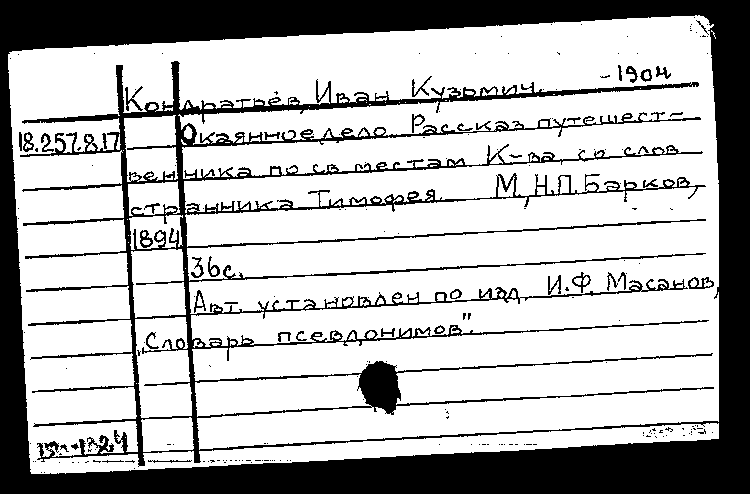 Кондратьев, Иван Кузьмич. -1904
18.257.8.17 Окаянное дело. Рассказ путешест-
венника по св. местам К-ва, со слов
странника Тимофея. М., Н.П. Барков,
1894
36с.
Авт. установлен по изд. И.Ф. Масанов,
„Словарь псевдонимов".